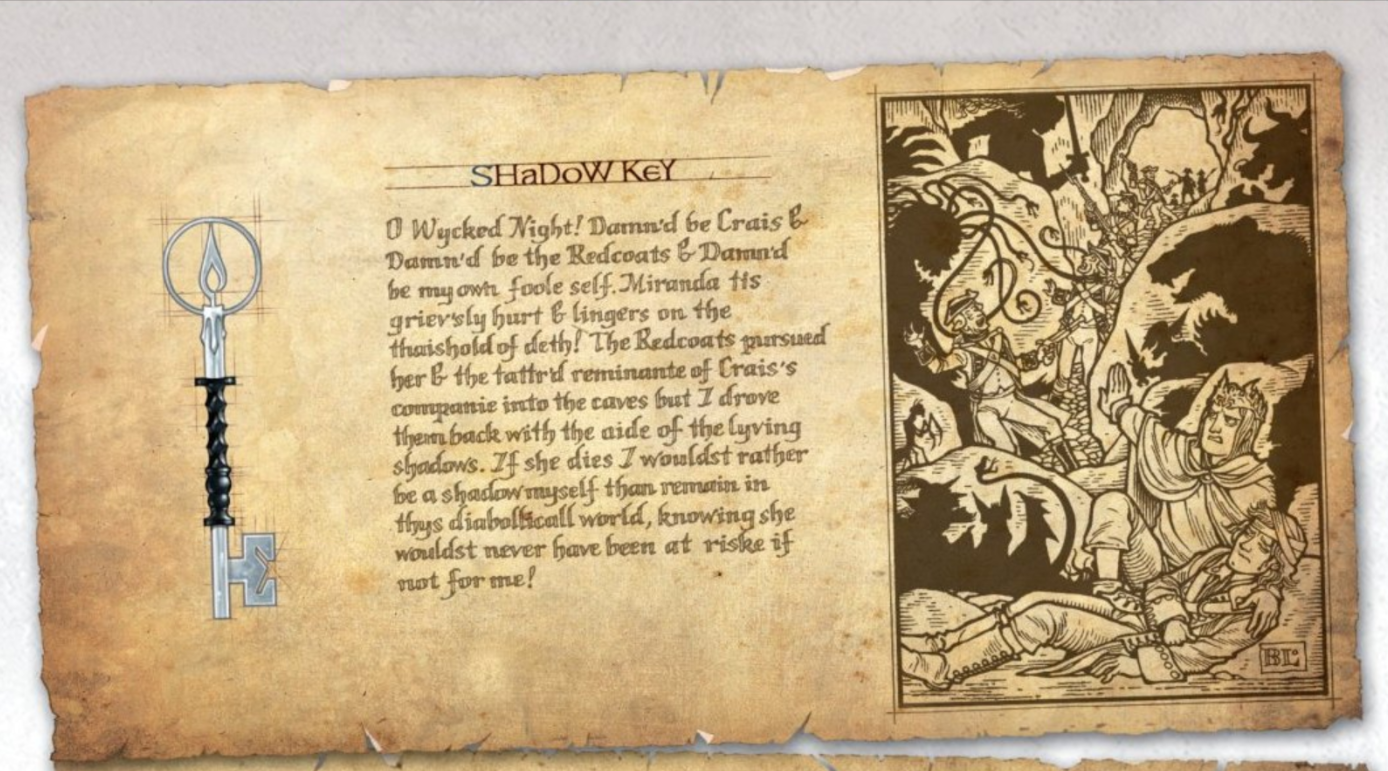 SHaDoW KeY
O Wycked Night! Damn'd be Crais &
Damn'd be the Redcoats & Damn'd
be my own foole self. Miranda tis
griev'sly hurt & lingers on the
thaishold of deth! The Redcoats pursued
her & the tattr'd reminante of Crais's
companie into the caves but I drove
them back with the aide of the lyving
shadows. If she dies I wouldst rather
be a shadow myself than remain in
thys diabollicall world, knowing she
wouldst never have been at riske if
not for me!
BL